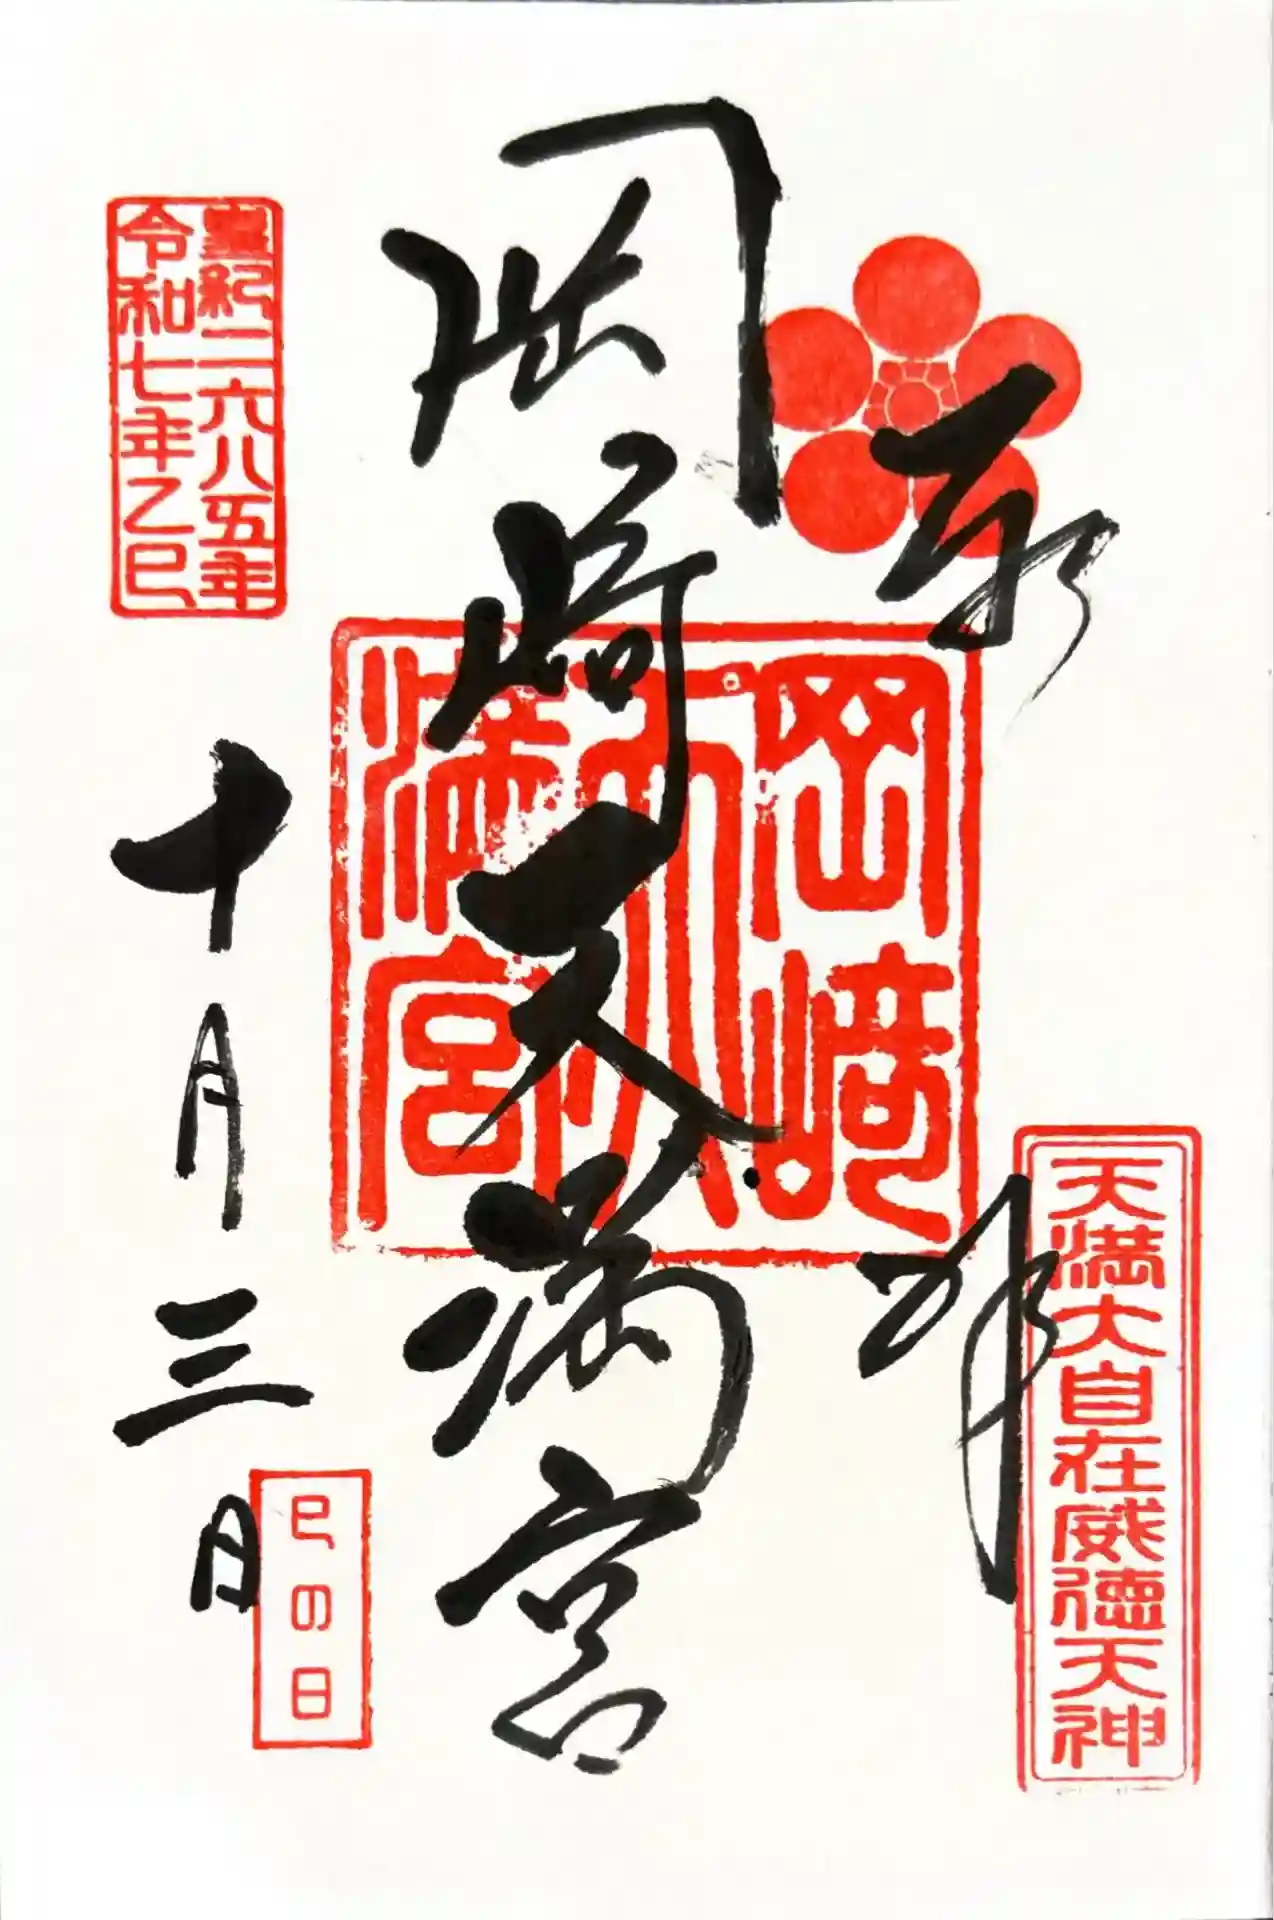 奉拝
天満大自在威徳天神
岡崎天満宮
岡崎
天満宮
皇紀二六八五年
令和七年乙巳
十月三日
巳の日